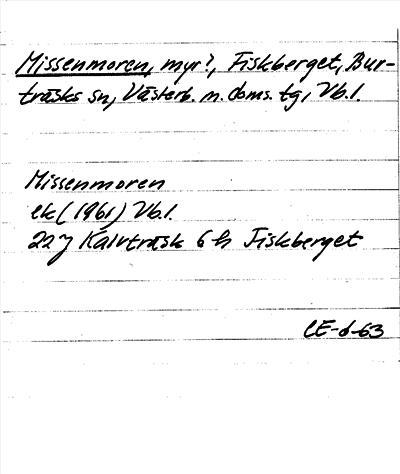 Missenmoren, myr?, Fiskberget, Bur-
träsks sn, Västerb. n. doms. tg, Vb.l.
Missenmoren
ek (1961) Vb.l.
22 J Kalvträsk 6 h Fiskberget
CE-d-63